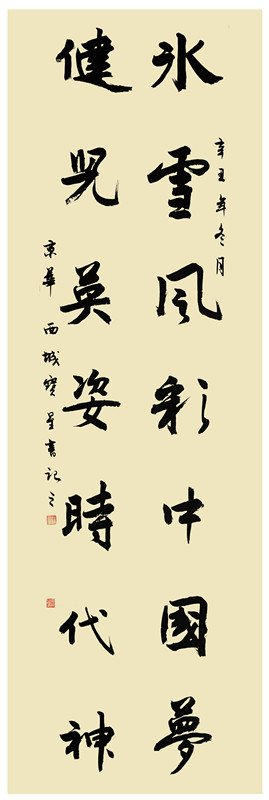 冰雪風彩中國夢
健兒英姿時代神
辛丑年冬月
京華西城寶星書記之